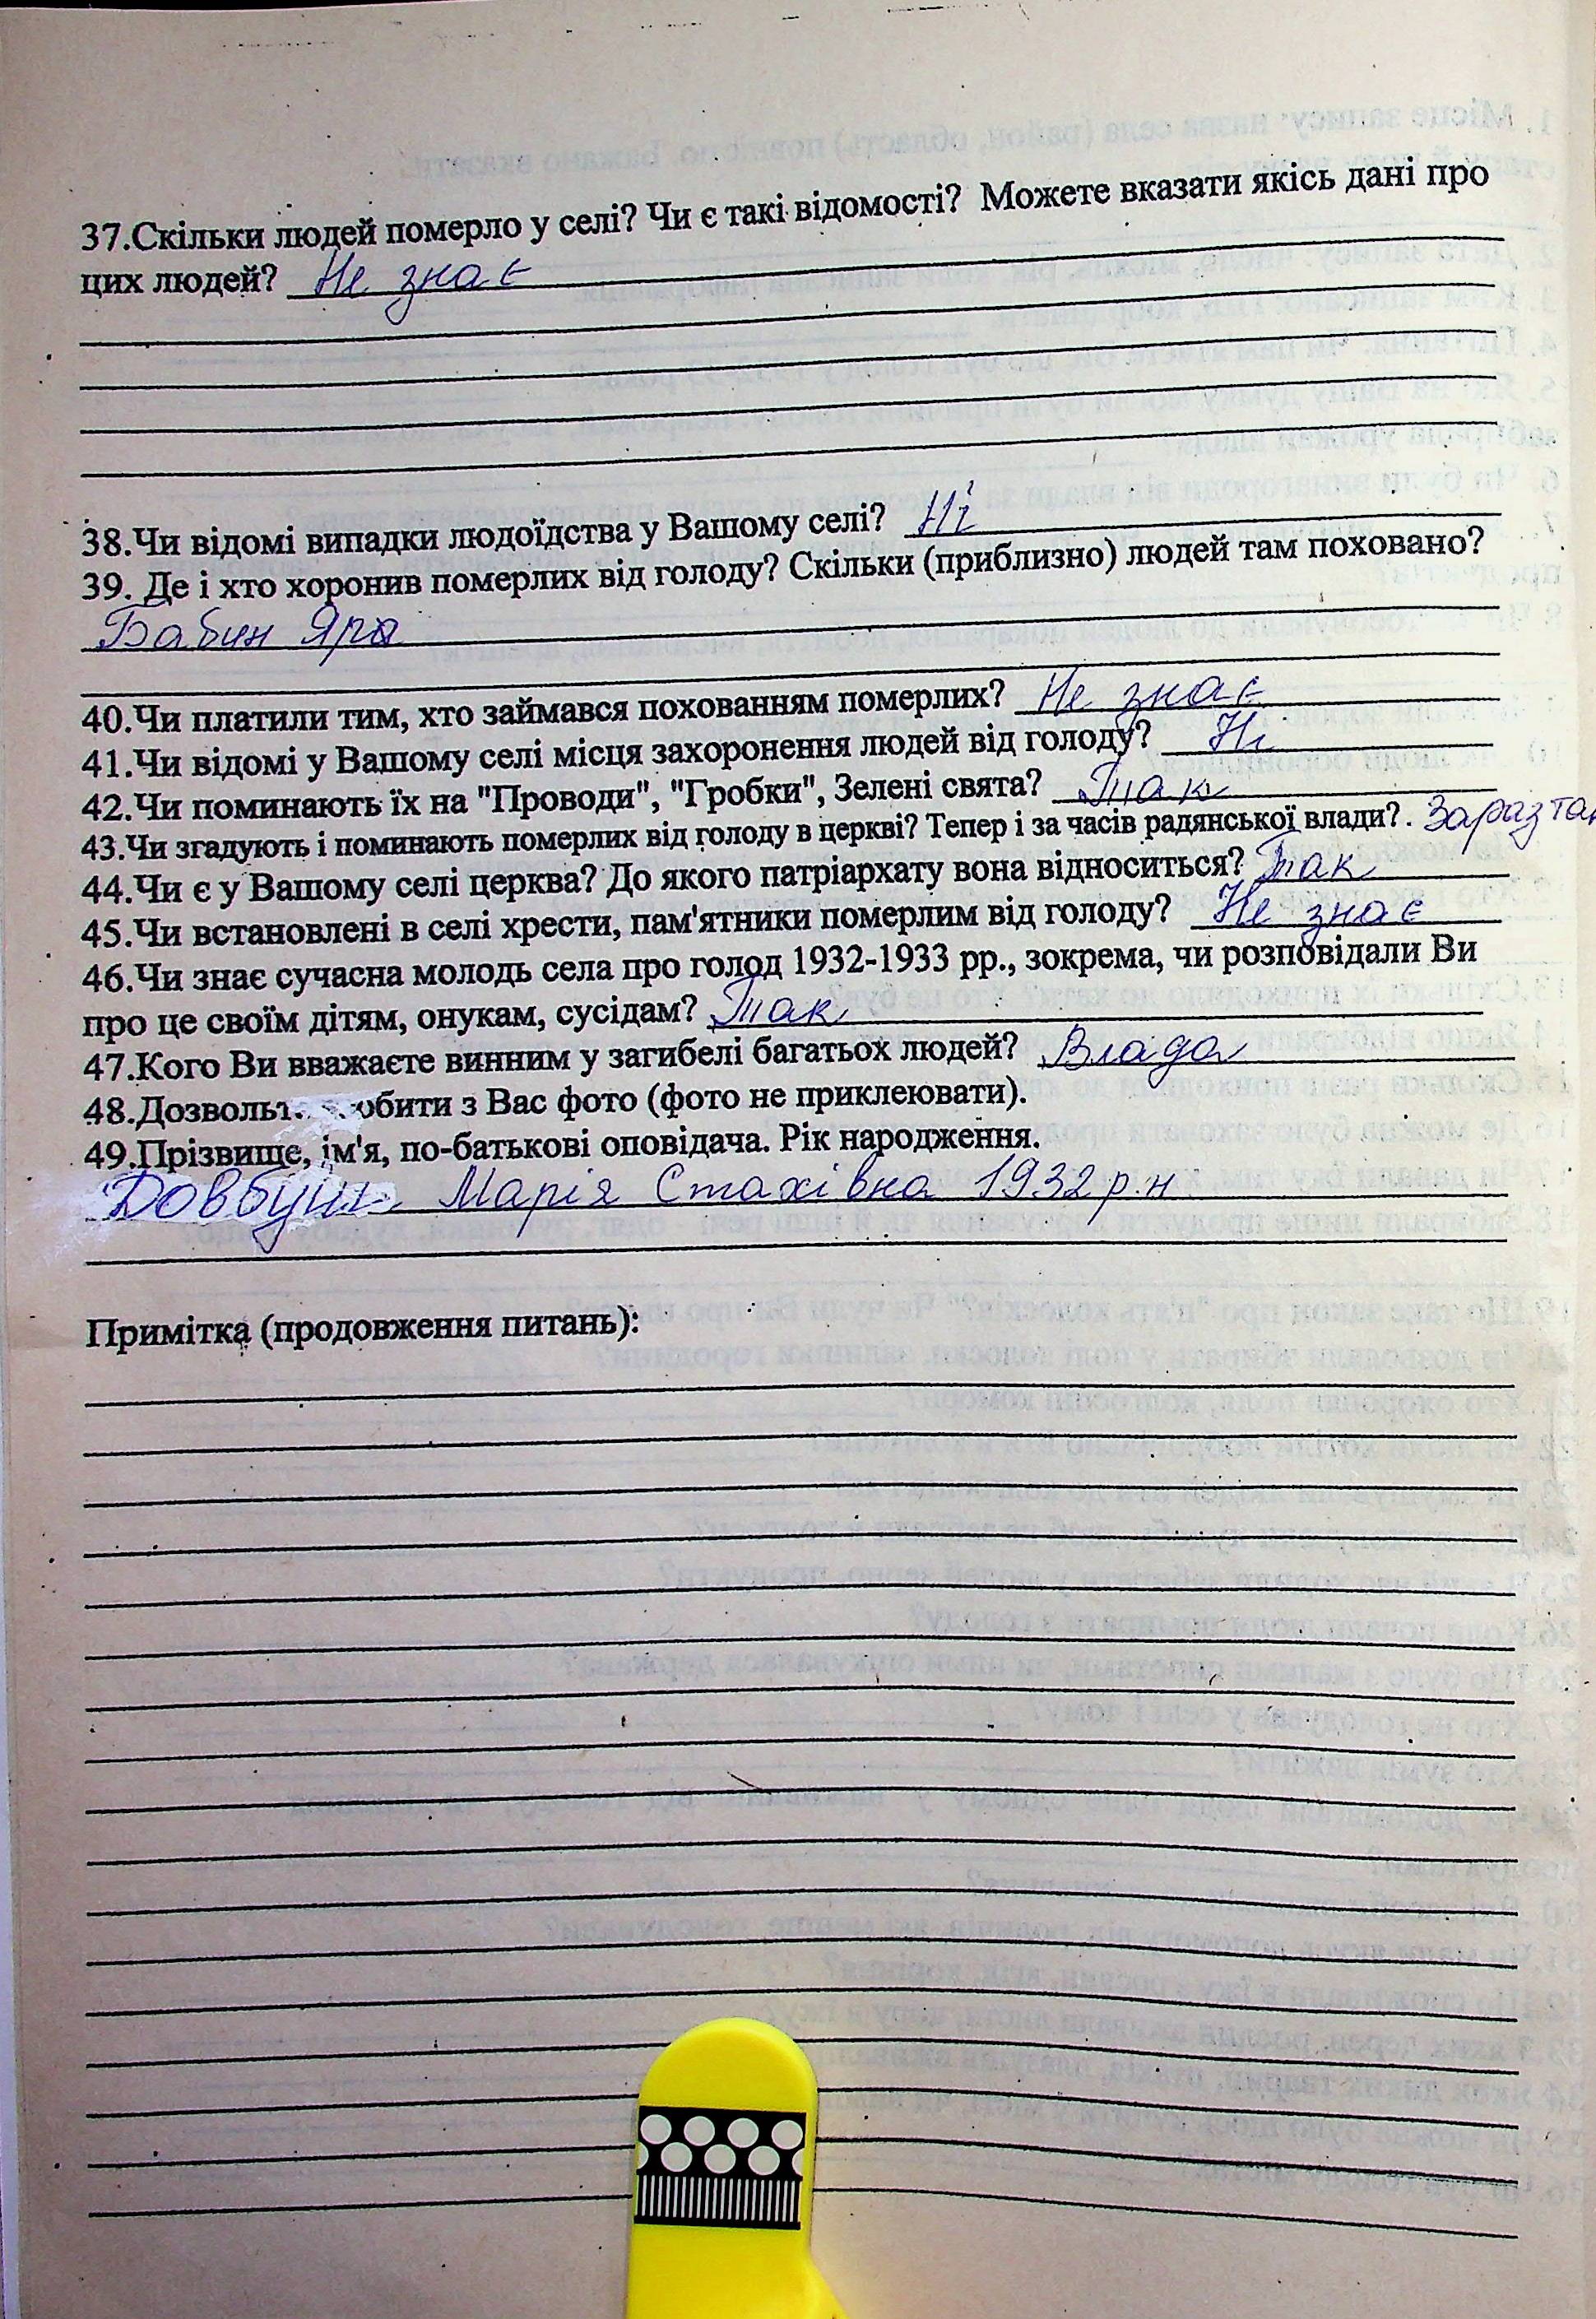 37.Скільки людей померло у селі? Чи є такі відомості? Можете вказати якісь дані про
цих людей? Не знає
38.Чи відомі випадки людоїдства у Вашому селі? Ні
39. Де і хто хоронив померлих від голоду? Скільки (приблизно) людей там поховано?
Бабин Яра
40.Чи платили тим, хто займався похованням померлих? Не знає
41.Чи відомі у Вашому селі місця захоронення людей від голоду? Ні
42.Чи поминають їх на "Проводи", "Гробки", Зелені свята? Так
43.Чи згадують і поминають померлих від голоду в церкві? Тепер і за часів радянської влади?. Зараз так
44.Чи є у Вашому селі церква? До якого патріархату вона відноситься? Так
45.Чи встановлені в селі хрести, пам'ятники померлим від голоду? Не знає
46.Чи знає сучасна молодь села про голод 1932-1933 рр., зокрема, чи розповідали Ви
про це своїм дітям, онукам, сусідам? Так
47.Кого Ви вважаєте винним у загибелі багатьох людей? Влада
48.Дозвольт обити з Вас фото (фото не приклеювати).
49.Прізвище, ім'я, по-батькові оповідача. Рік народження.
Довбуш Марія Стахівна 1932 р.н
Примітка (продовження питань):